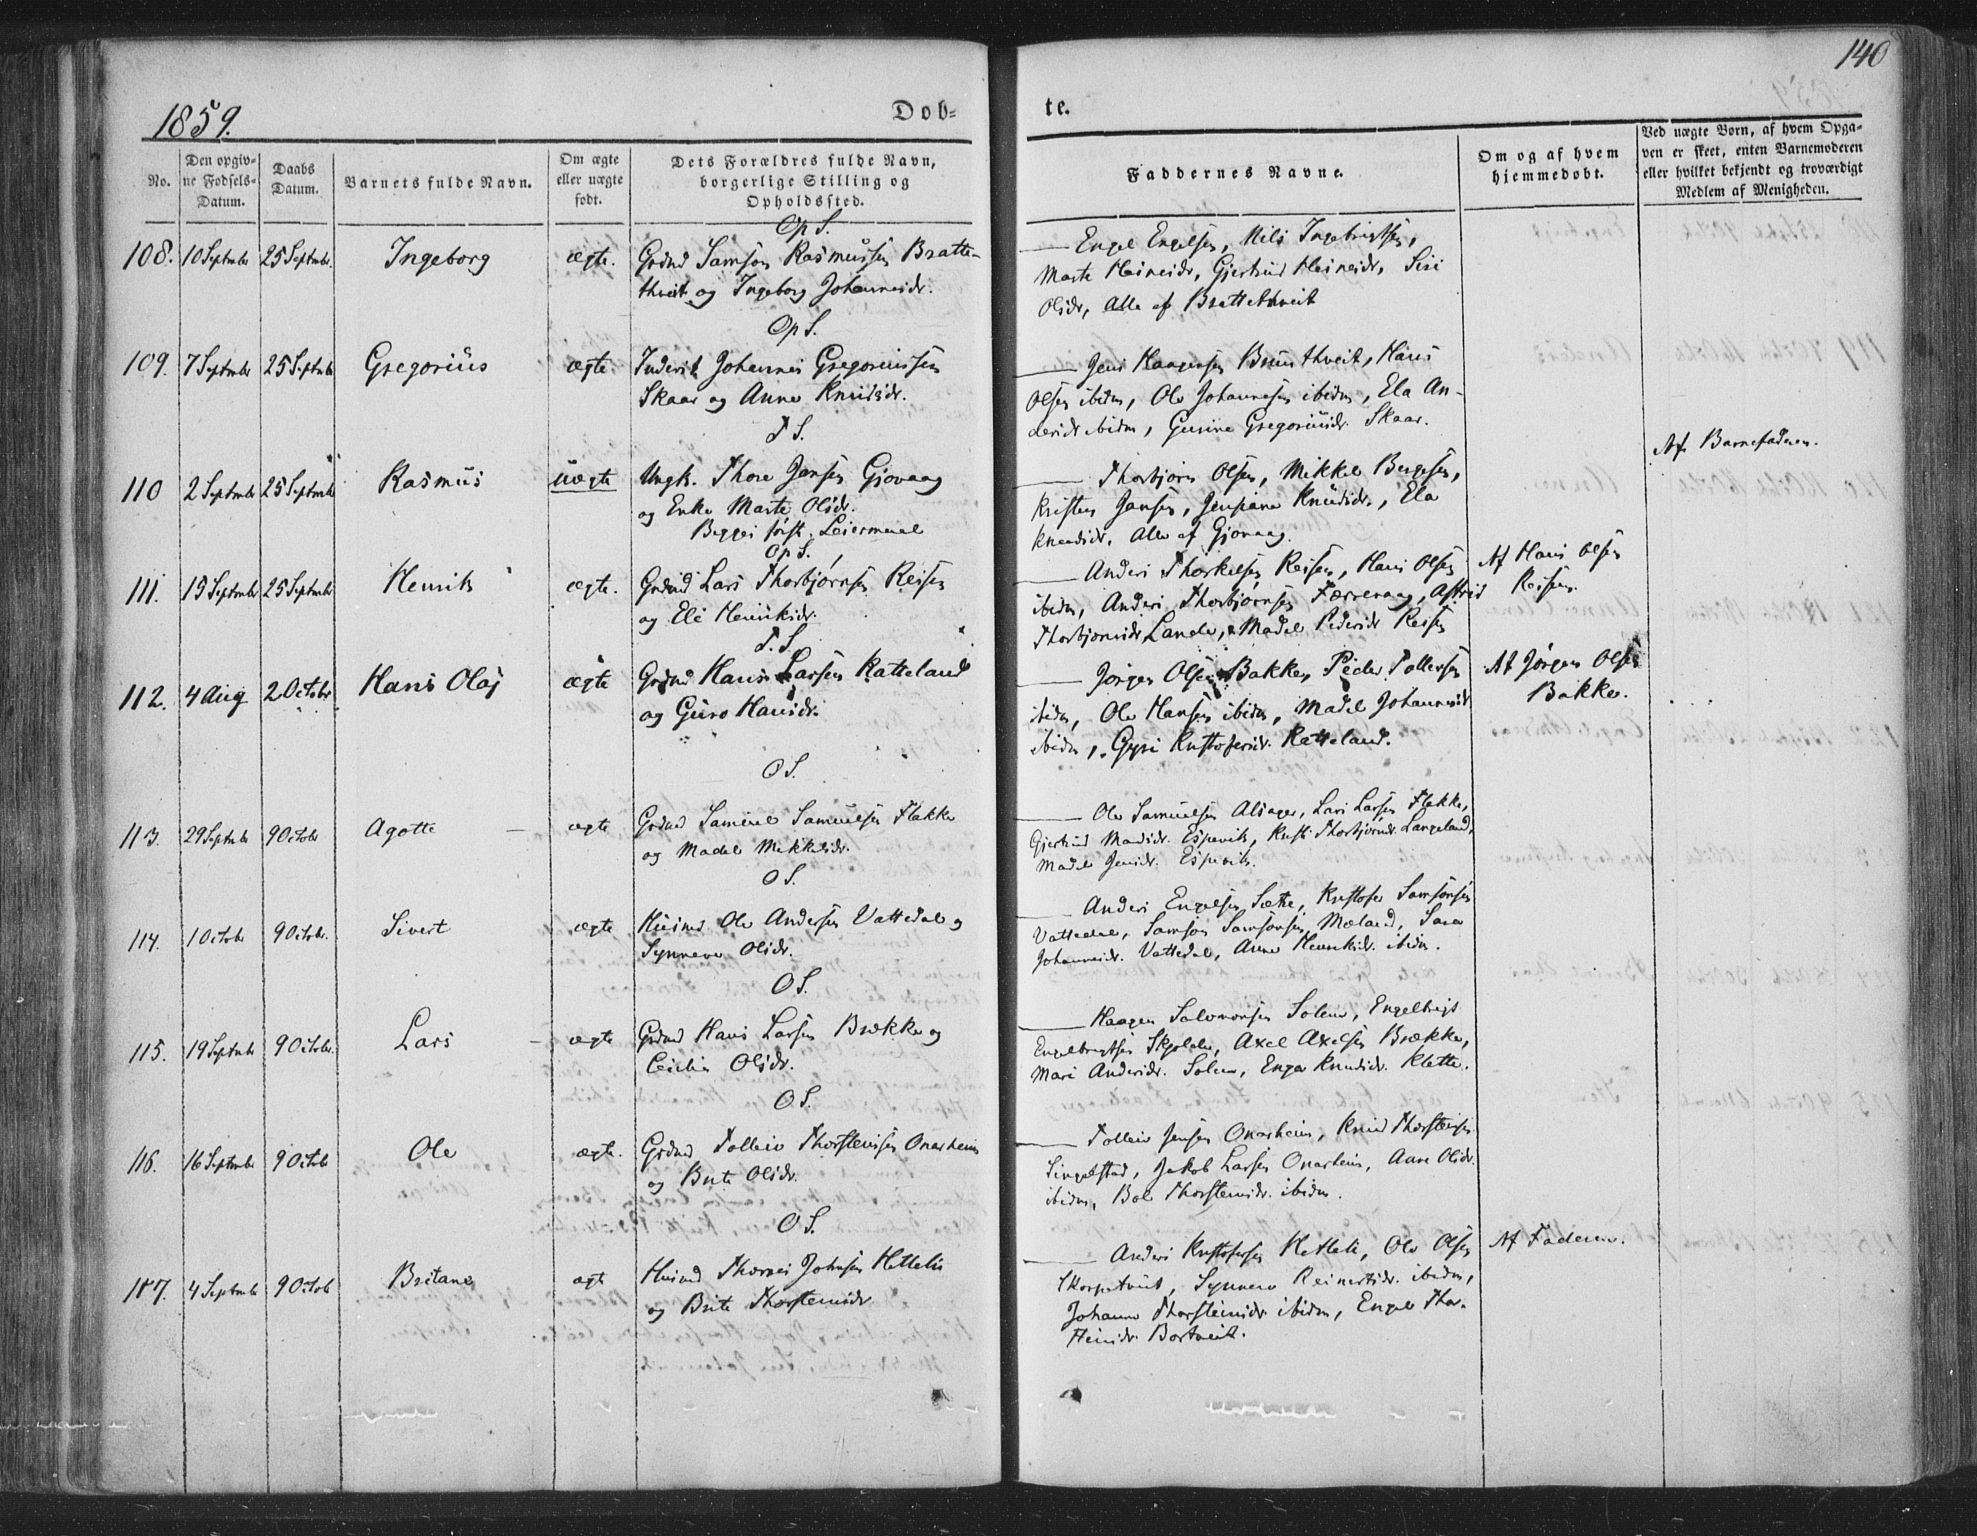 140
1859.
Dob-
te.
No.
Den opgiv-
ne Fødsels-
Datum.
Daabs
Datum.
Barnets fulde Navn.
Om ægte
eller uægte
født.
Dets Forældres fulde Navn,
borgerlige Stilling og
Opholdssted.
Faddernes Navne.
Om og af hvem
hjemmedøbt.
Ved uægte Børn, af hvem Opga-
ven er skeet, enten Barnemoderen
eller hvilket bekjendt og troværdigt
Medlem af Menigheden.
Op S.
108. 10 Septmbr 25 Septmbr. Ingeborg ægte. Grdmd Samson Rasmussen Bratte-
thveit og Ingeborg Johannesdr.
Engel Engelsen, Nils Ingebrigtsen,
Marte Heinesdr, Gjertrud Heinesdr, Siri
Olsdr, Alle af Brattethveit
Op S.
109. 7 Septmbr 25 Septmbr Gregorius ægte. Inderst Johannes Gregoriussen
Skaar og Anne Knudsdr.
Jens Haagensen Brunthveit, Hans
Olsen ibidm, Ole Johannesen ibidm, Ela An-
dersdr ibidm, Gurine Gregoriusdr. Skaar.
T S.
110 2 Septmbr 25 Septmbr Rasmus uægte Ungk. Thore Jansen Gjøvaag
og Enke Marte Olsdr.
Begges første Leiermaal
Thorbjørn Olsen, Mikkel Børgesen,
Kristen Jansen, Knudsdr., Ela
Knudsdr, Alle af Gjøvaag.
Af Barnefaderen.
Op S.
111. 15 Septmbr 25 Septmbr Henrik ægte. Grdmd Lars Thorbjørnsen Reisen
og Eli Henriksdr.
Anders Thorkelsen Reisen, Hans Olsen
ibidm, Anders Thorbjørnsen Færrevaag, Astrid
Thorbjørnsdr Lande, Madel Pedersdr Reisen
Af Hans Olsen
Reisen.
T. S.
112. 4 Aug 2 Octobr Hans Olaj ægte Grdmd Hans Larsen Ratteland
og Guro Hansdr.
Jørgen Olsen Bakke, Peder Tollevsen
ibidm, Ole Hansen ibidm, Madel Johannesdr
ibidm, Gyri Kristofersdr. Ratteland.
Af Jørgen Olsen
Bakke.
O S.
113. 29 Septmbr 9 Octobr Agotte ægte Grdmd Samuel Samuelsen Flakke
og Madel Mikkelsdr.
Ole Samuelsen Alsager, Lars Larsen Flakke,
Gjertrud Madsdr. Espevik, Kristi Thorbjørnsdr. Langeland,
Madel Jensdr. Espevik.
O S.
114. 1 Octobr 9 Octobr. Sivert ægte Husmd Ole Andersen Vattedal og
Synneve Olsdr.
Anders Engelsen Sæthe, Kristofer Samsonsen
Vattedal, Samson Samsonsen Mæland, Sara
Johannesdr. Vattedal, Anne Henriksdr. ibidm.
O S.
115. 19 Septmbr 9 Octobr. Lars ægte Grdmd Hans Larsen Brække og
Cecilia Olsdr.
Haagen Salomonsen Solem, Engelbrigt
Engelbrigtsen Skjolde, Axel Axelsen Brække,
Mari Andersdr. Solem, Enger Knudsdr. Klette.
O S.
116. 16 Septmbr 9 Octobr Ole ægte. Grdmd Tolleiv Thorsteinsen Onarheim
og Brite Olsdr.
Tolleiv Jensen Onarheim, Knud Thorsteinsen
Singelstad, Jakob Larsen Onarheim, Anne Olsdr.
ibidm, Bol Thorsteinsdr. ibidm.
O S.
117. 4 Septmbr 9 Octob Britane ægt Husmd Johnsen Hetleli
og Brite Thorsteinsdr
Anders Kristofersen Hetleli, Ole Olsen
Skorpetveit, Synneve Reinertsdr. ibidm,
Johanne Thorsteinsdr ibidm, Engel Thor-
steinsdr Bortveit.
Af Faderen.